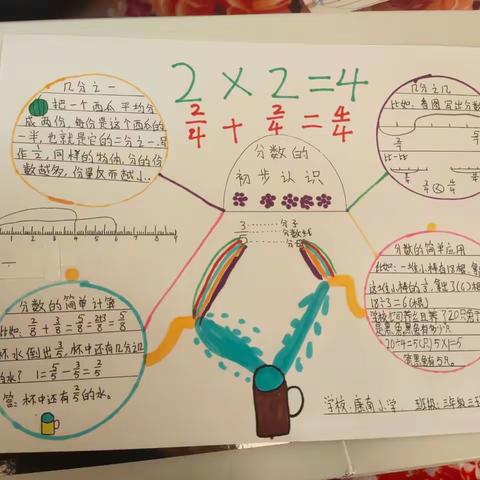 2×2=4
2/4 + 2/4 = 4/4
几分之一
把一个西瓜平均分
成两份，每份是这个西瓜的
一半，也就是它的二分之一，写
作1/2，同样的物体，分的份
数越多，份量反而越小。
几分之几
比如：看图写出分数
比一比
分数的
初步认识
3 分子
分数线
5 分母
0 1 2 3 4 5 6 7 8 9
分数的简单计算
比如：2/8 + 3/8 = 5/8 = 2+3/8 = 5/8
杯水倒出3/5，杯中还有几分之几
的水？ 1=5/5-3/5=2/5
答：杯中还有2/5的水。
分数的简单应用
比如：一堆小棒有18根
这堆小棒的 拿出3(6)根
18÷3=6(根)
20÷4=5(只) 5×1=5
答黑兔有5只。
学校：康南小学 班级：三年级三班